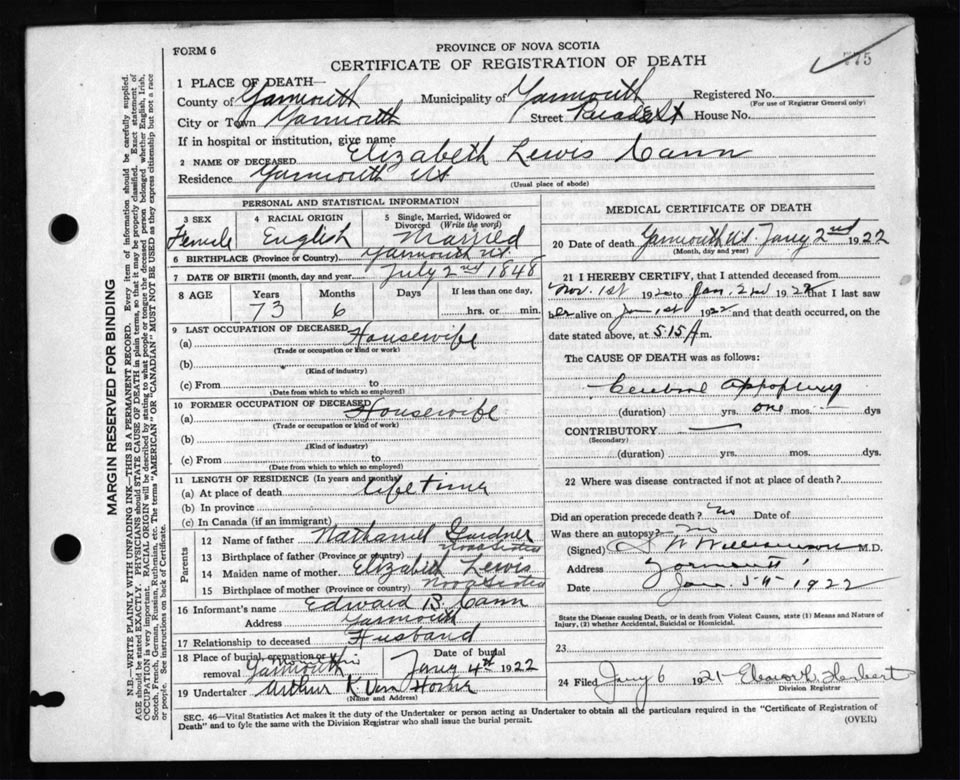 FORM 6
PROVINCE OF NOVA SCOTIA
CERTIFICATE OF REGISTRATION OF DEATH
775
1 PLACE OF DEATH—
County of Yarmouth Municipality of Yarmouth Registered No.
(For use of Registrar General only)
City or Town Yarmouth Street House No.
If in hospital or institution, give name
2 NAME OF DECEASED Elizabeth Lewis Cann
Residence Yarmouth NS
(Usual place of abode)
PERSONAL AND STATISTICAL INFORMATION
3 SEX 4 RACIAL ORIGIN 5 Single, Married, Widowed or Divorced (Write the word)
Female English Married
6 BIRTHPLACE (Province or Country) Yarmouth NS
7 DATE OF BIRTH (month, day and year) July 2nd 1848
8 AGE Years Months Days If less than one day,
73 6 hrs. or min.
9 LAST OCCUPATION OF DECEASED
(a) Housewife
(Trade or occupation or kind or work)
(b)
(Kind of industry)
(c) From to
(Date from which to which so employed)
10 FORMER OCCUPATION OF DECEASED
(a) Housewife
(Trade or occupation or kind of work)
(b)
(Kind of industry)
(c) From to
(Date from which to which so employed)
11 LENGTH OF RESIDENCE (In years and months)
(a) At place of death life time
(b) In province
(c) In Canada (if an immigrant)
Parents
12 Name of father Nathaniel Gardner
13 Birthplace of father (Province or country) Nova Scotia
14 Maiden name of mother Elizabeth Lewis
15 Birthplace of mother (Province or country) Nova Scotia
16 Informant's name Edward B. Cann
Address Yarmouth
17 Relationship to deceased Husband
18 Place of burial, cremation or removal Yarmouth Date of burial Jany 4th 1922
19 Undertaker Arthur K Van Horne
(Name and Address)
MEDICAL CERTIFICATE OF DEATH
20 Date of death Yarmouth NS Jany 2nd 1922
(Month, day and year)
21 I HEREBY CERTIFY, that I attended deceased from
Nov. 1st 1920 to Jan. 2nd 1922 that I last saw
her alive on Jan 1st 1922 and that death occurred, on the
date stated above, at 5.15 A m.
The CAUSE OF DEATH was as follows:
Cerebral appoplexy
(duration) yrs. one mos. — dys
CONTRIBUTORY —
(Secondary)
(duration) yrs. mos. dys.
22 Where was disease contracted if not at place of death?
Did an operation precede death? no Date of
Was there an autopsy? no
(Signed) Williamson M.D.
Address Yarmouth
Date Jan. 5th 1922
State the Disease causing Death, or in death from Violent Causes, state (1) Means and Nature of
Injury, (2) whether Accidental, Suicidal or Homicidal.
23
24 Filed Jany 6 1921 Herbert
Division Registrar
SEC. 46—Vital Statistics Act makes it the duty of the Undertaker or person acting as Undertaker to obtain all the particulars required in the "Certificate of Registration of
Death" and to fyle the same with the Division Registrar who shall issue the burial permit.
(OVER)
MARGIN RESERVED FOR BINDING
N.B.—WRITE PLAINLY WITH UNFADING INK—THIS IS A PERMANENT RECORD. Every item of information should be carefully supplied.
AGE should be stated EXACTLY. PHYSICIANS should STATE CAUSE OF DEATH in plain terms, so that it may be properly classified. Exact statement of
OCCUPATION is very important. RACIAL ORIGIN will be described by stating to what people or tongue the deceased person belonged whether English, Irish,
Scotch, French, German, Russian, Ruthenian, etc. The terms "AMERICAN" or "CANADIAN" MUST NOT BE USED as they express citizenship but not a race
or people. See instructions on back of Certificate.